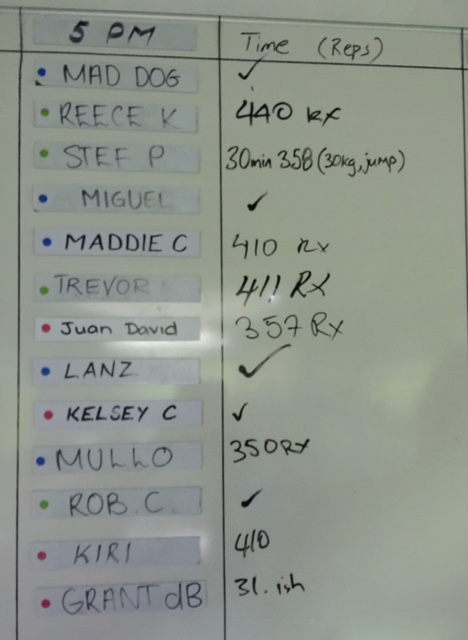 5 PM Time (Reps)
MAD DOG ✓
REECE K 440 RX
STEF P 30min 358 (30kg, jump)
MIGUEL ✓
MADDIE C 410 RX
TREVOR 411 RX
Juan David 357 RX
LANZ ✓
KELSEY C ✓
MULLO 350 RX
ROB. C ✓
KIRI 410
GRANT dB 31.ish